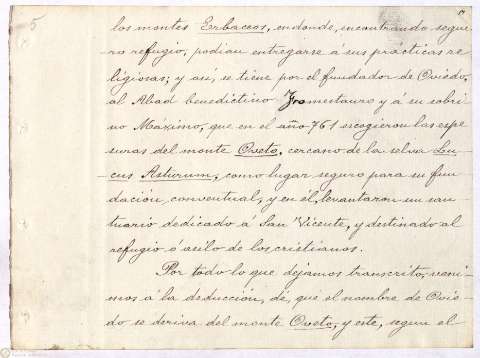 5
los montes Erbaceos, en donde, encontrando segu-
ro refugio, podian entregarse á sus prácticas re-
ligiosas; y asi, se tiene por el fundador de Oviedo,
al Abad benedictino Fromestauro y á su sobri-
no Máximo, que en el año 761 escogieron las espe-
suras del monte Oveto, cercano de la selva Lu-
cus Asturum, como lugar seguro para su fun-
dación conventual, y en él, levantaron un san-
tuario dedicado á San Vicente, y destinado al
refugio ó asilo de los cristianos.
Por todo lo que dejamos transcrito, veni-
mos á la deducción, de, que el nombre de Ovie-
do se deriva del monte Oveto, y este, segun el